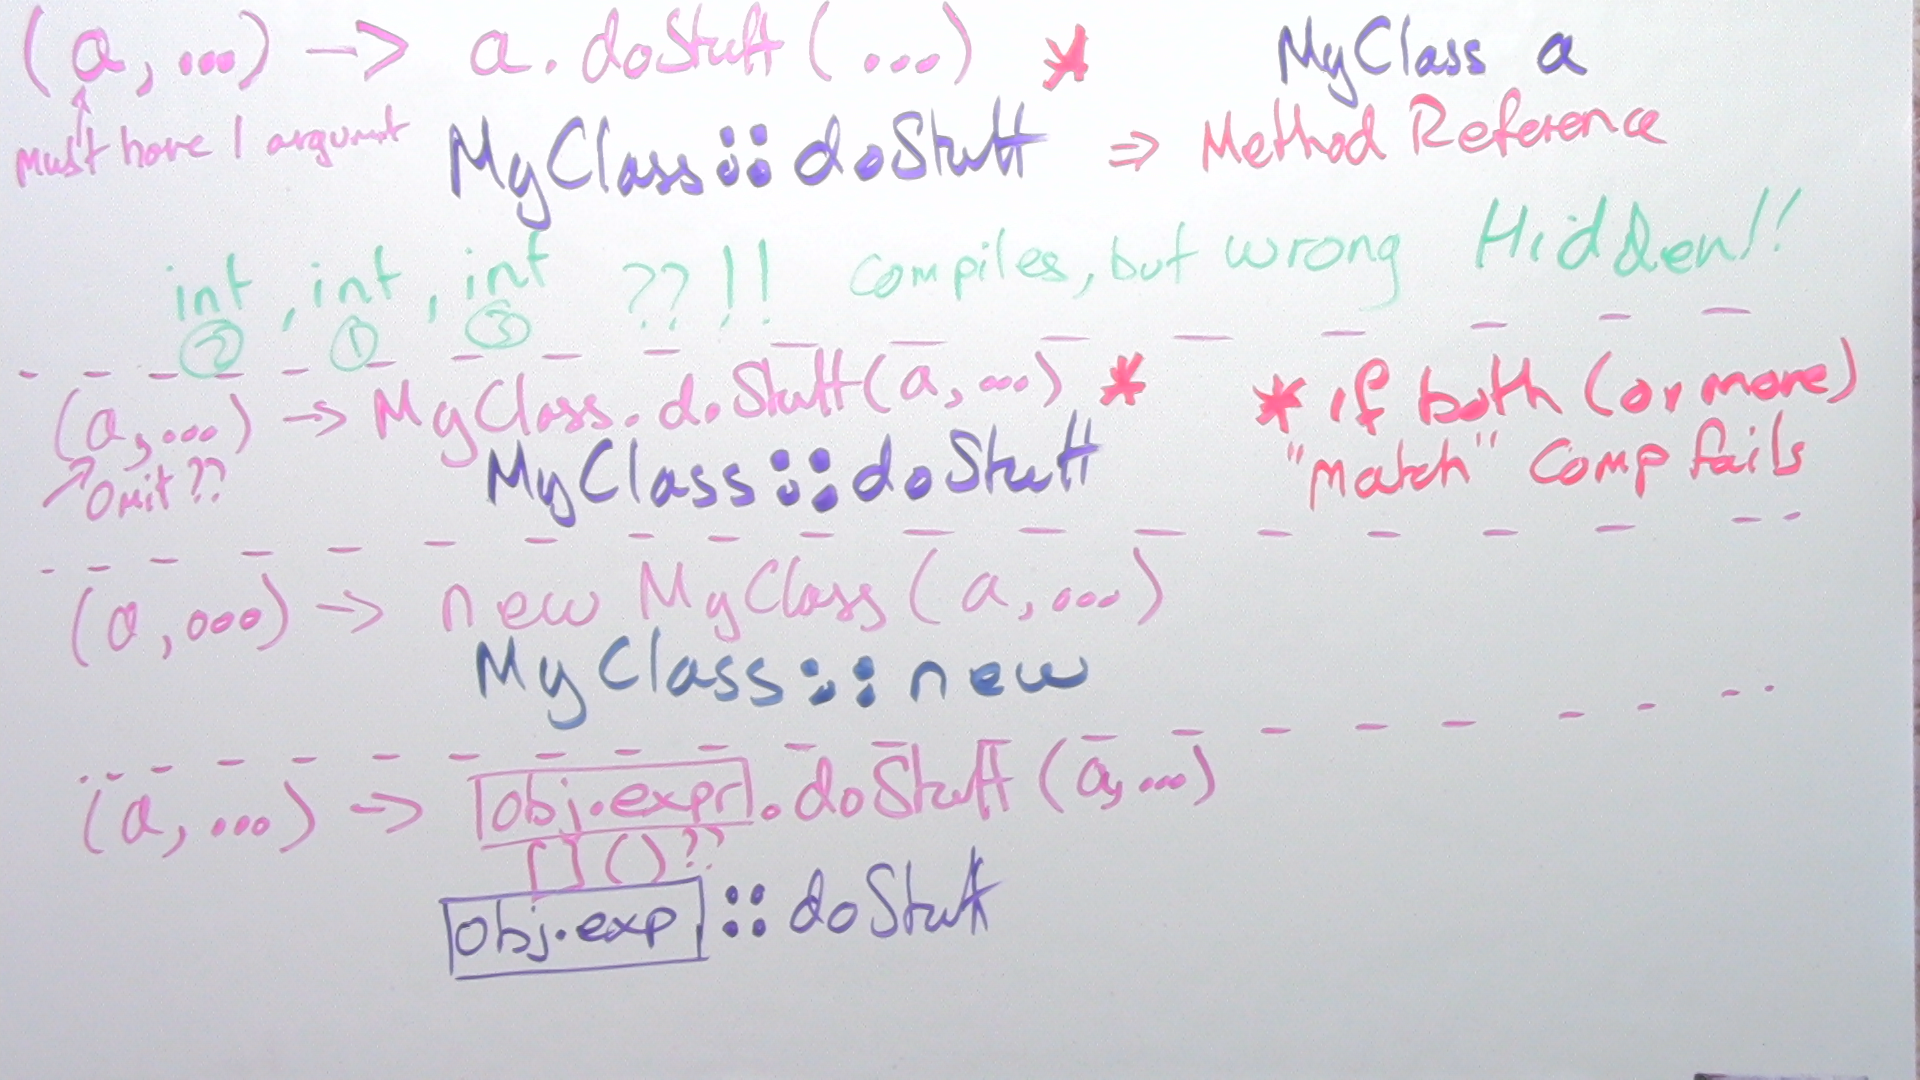 (a, ...) -> a.doStuff(...) * MyClass a
must have 1 argument MyClass::doStuff => Method Reference
int, int, int ??!! compiles, but wrong Hidden!!
② ① ③
(a, ...) -> MyClass.doStuff(a, ...) * * if both (or more)
Omit?? MyClass::doStuff "match" comp fails
(a, ...) -> new MyClass(a, ...)
MyClass::new
(a, ...) -> obj.expr.doStuff(a, ...)
[] ()??
obj.exp::doStuff